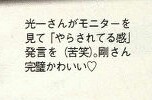 光一さんがモニターを
見て「やらされてる感」
発言を（苦笑）。剛さん
完璧かわいい♡